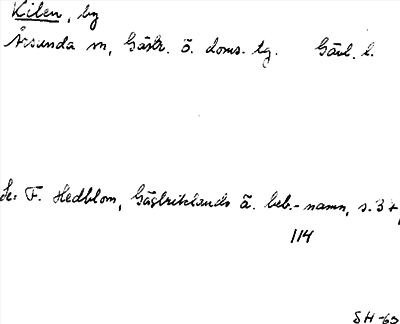 Kilen, by
Årsunda sn, Gästr. ö. doms. tg. Gävl. l.
Se: F. Hedblom, Gästriklands ä. beb.-namn, s. 37,
114
SH-63